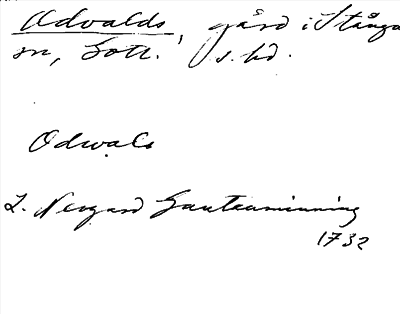 Odvalds, gård i Stånga
sn, Gotl., s. hd.
Odwals
L. Neogard Gautauminning
1732